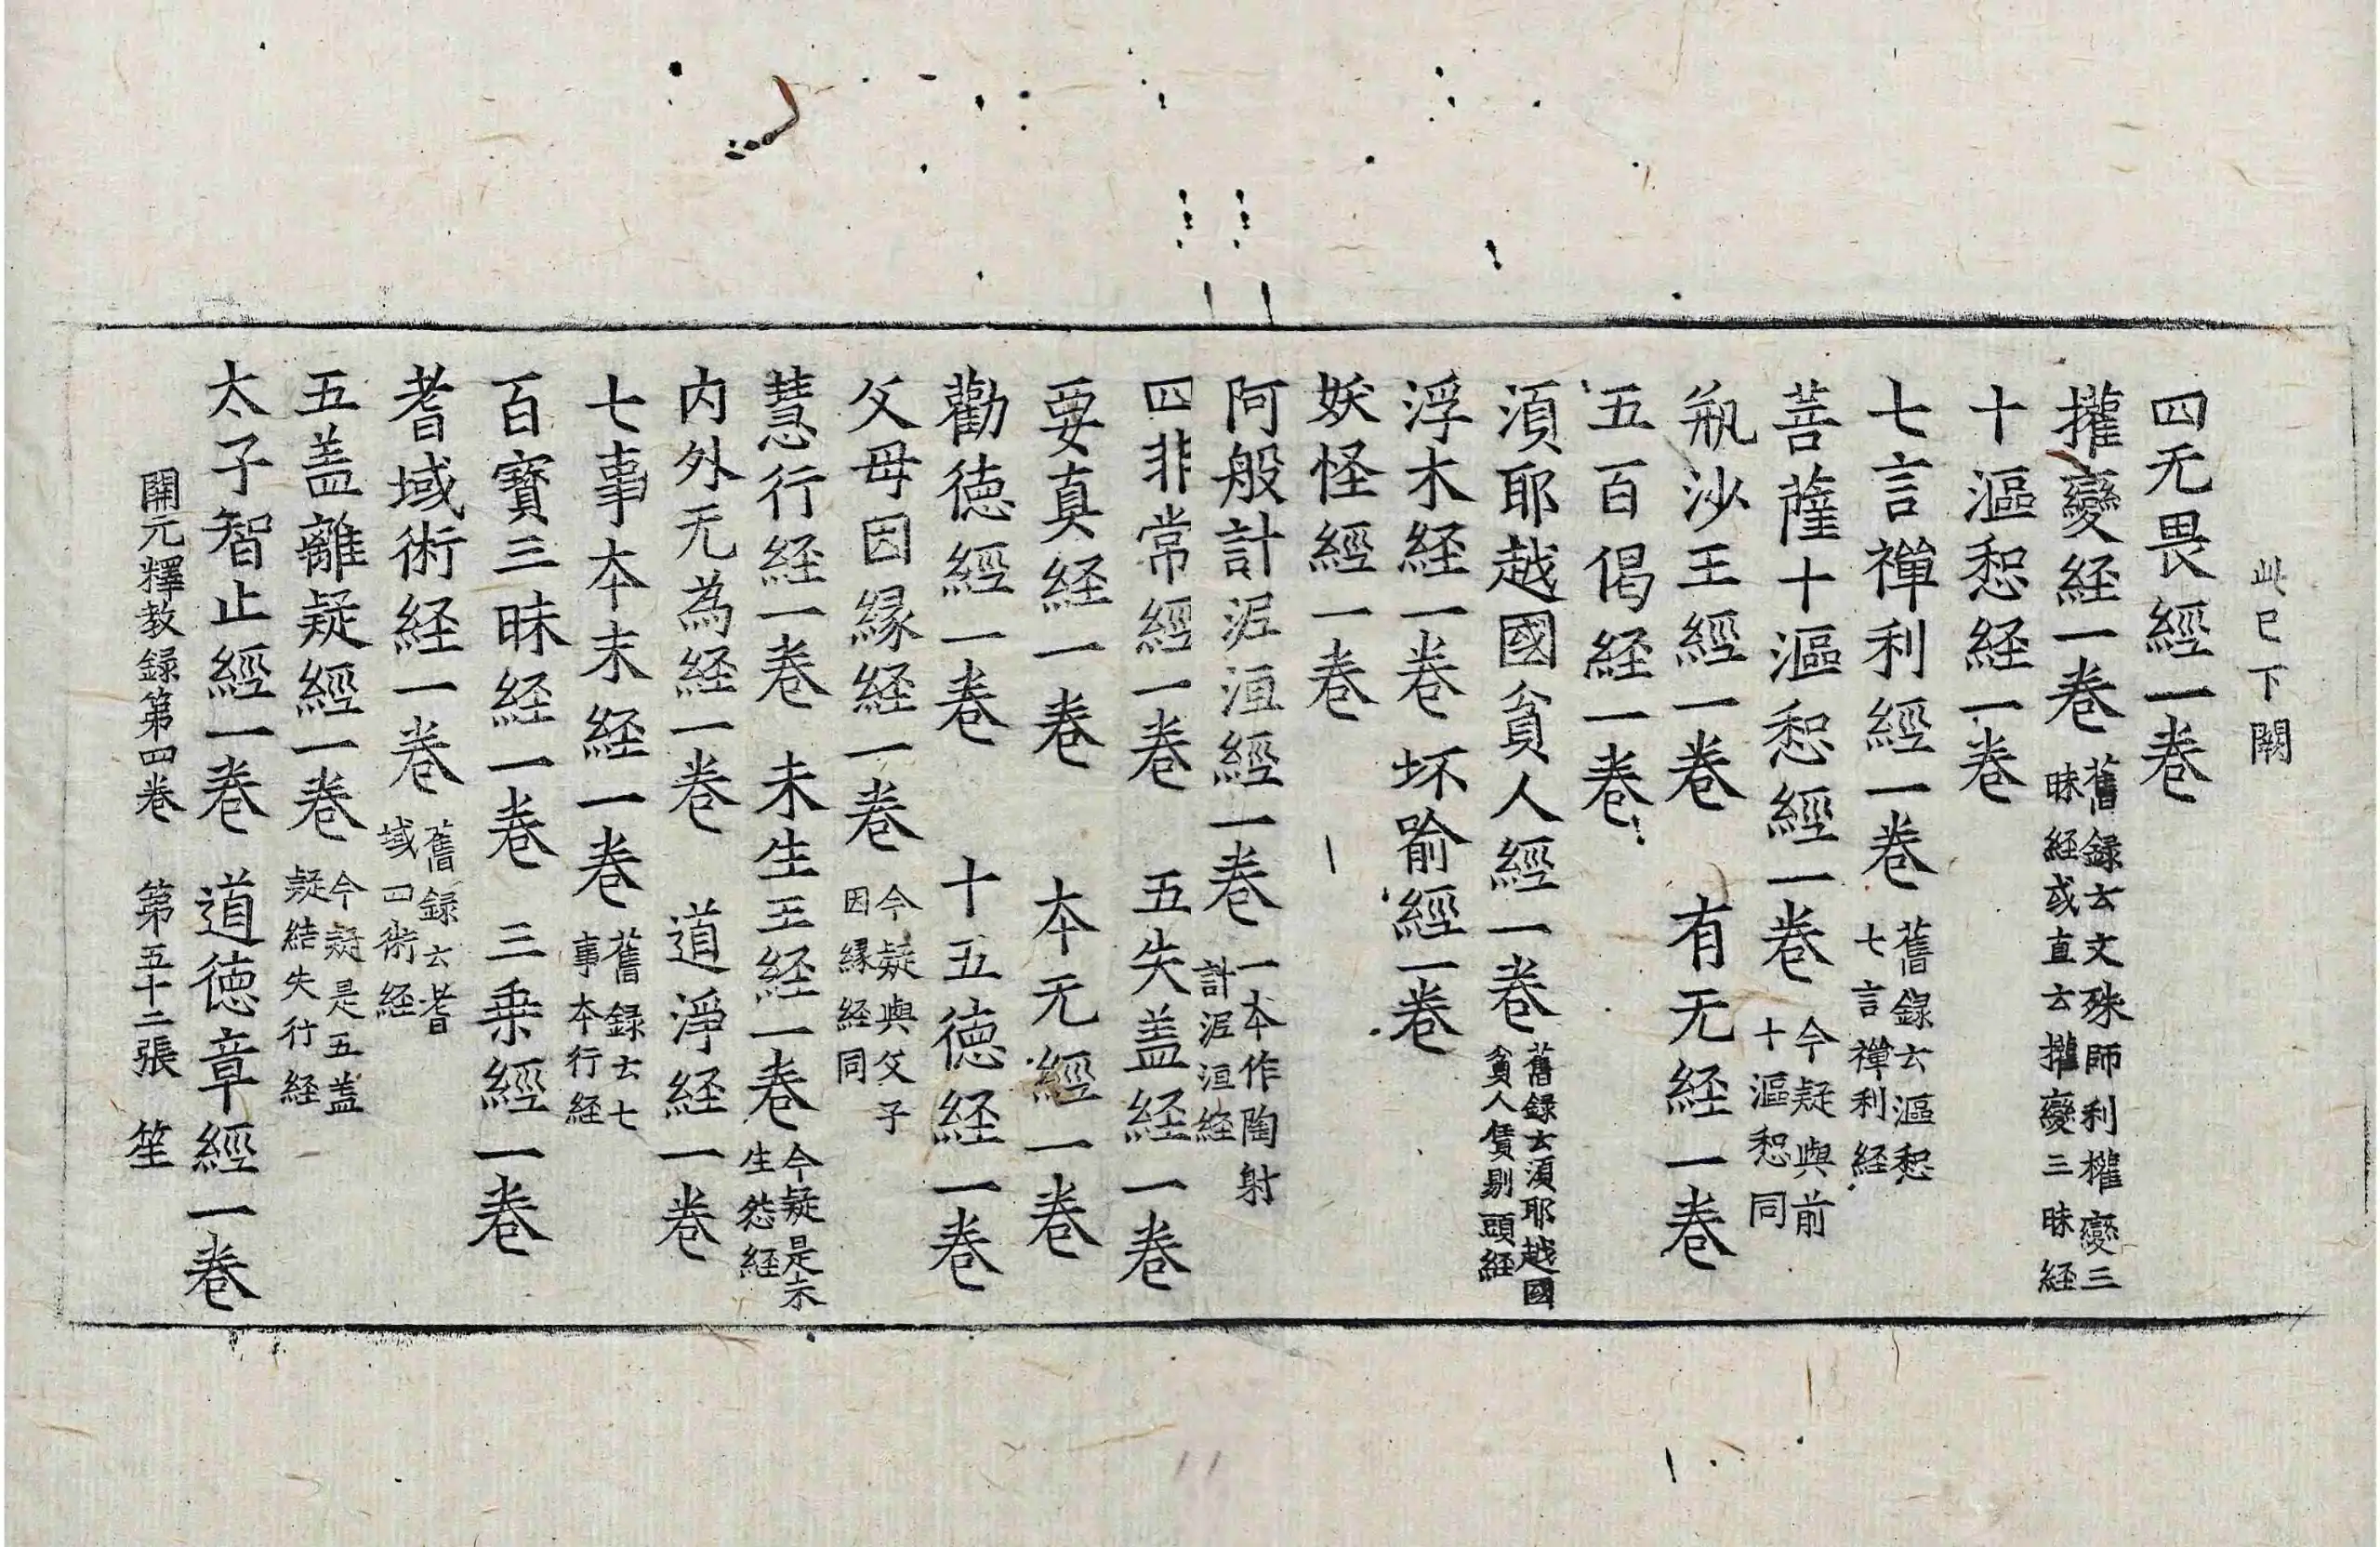 此已下闕
四无畏經一卷
攉變経一卷 舊録云文殊師利權變三昧経或直云攉變三昧経
十漚惒経一卷
七言禪利經一卷 舊録云漚惒七言禪利経
菩薩十漚惒經一卷 今疑與前十漚惒同
瓶沙王經一卷 有无経一卷
五百偈経一卷
湏耶越國貧人經一卷 舊録云湏耶越國貧人賃剔頭経
浮木経一卷 坏喻經一卷
妖怪經一卷
阿般計泥洹經一卷 一本作陶射計泥洹経
四非常經一卷 五失盖経一卷
要真経一卷 本无經一卷
勸徳經一卷 十五徳経一卷
父母因縁経一卷 今疑與父子因縁経同
慧行経一卷 未生王経一卷 今疑是未生怨経
内外无為経一卷 道淨経一卷
七事本末経一卷 舊録云七事本行経
百寳三昧経一卷 三乗經一卷
耆域術経一卷 舊録云耆域四術経
五盖離疑經一卷 今疑是五盖疑結失行経
太子智止經一卷 道徳章經一卷
開元釋教録第四卷 第五十二張 笙